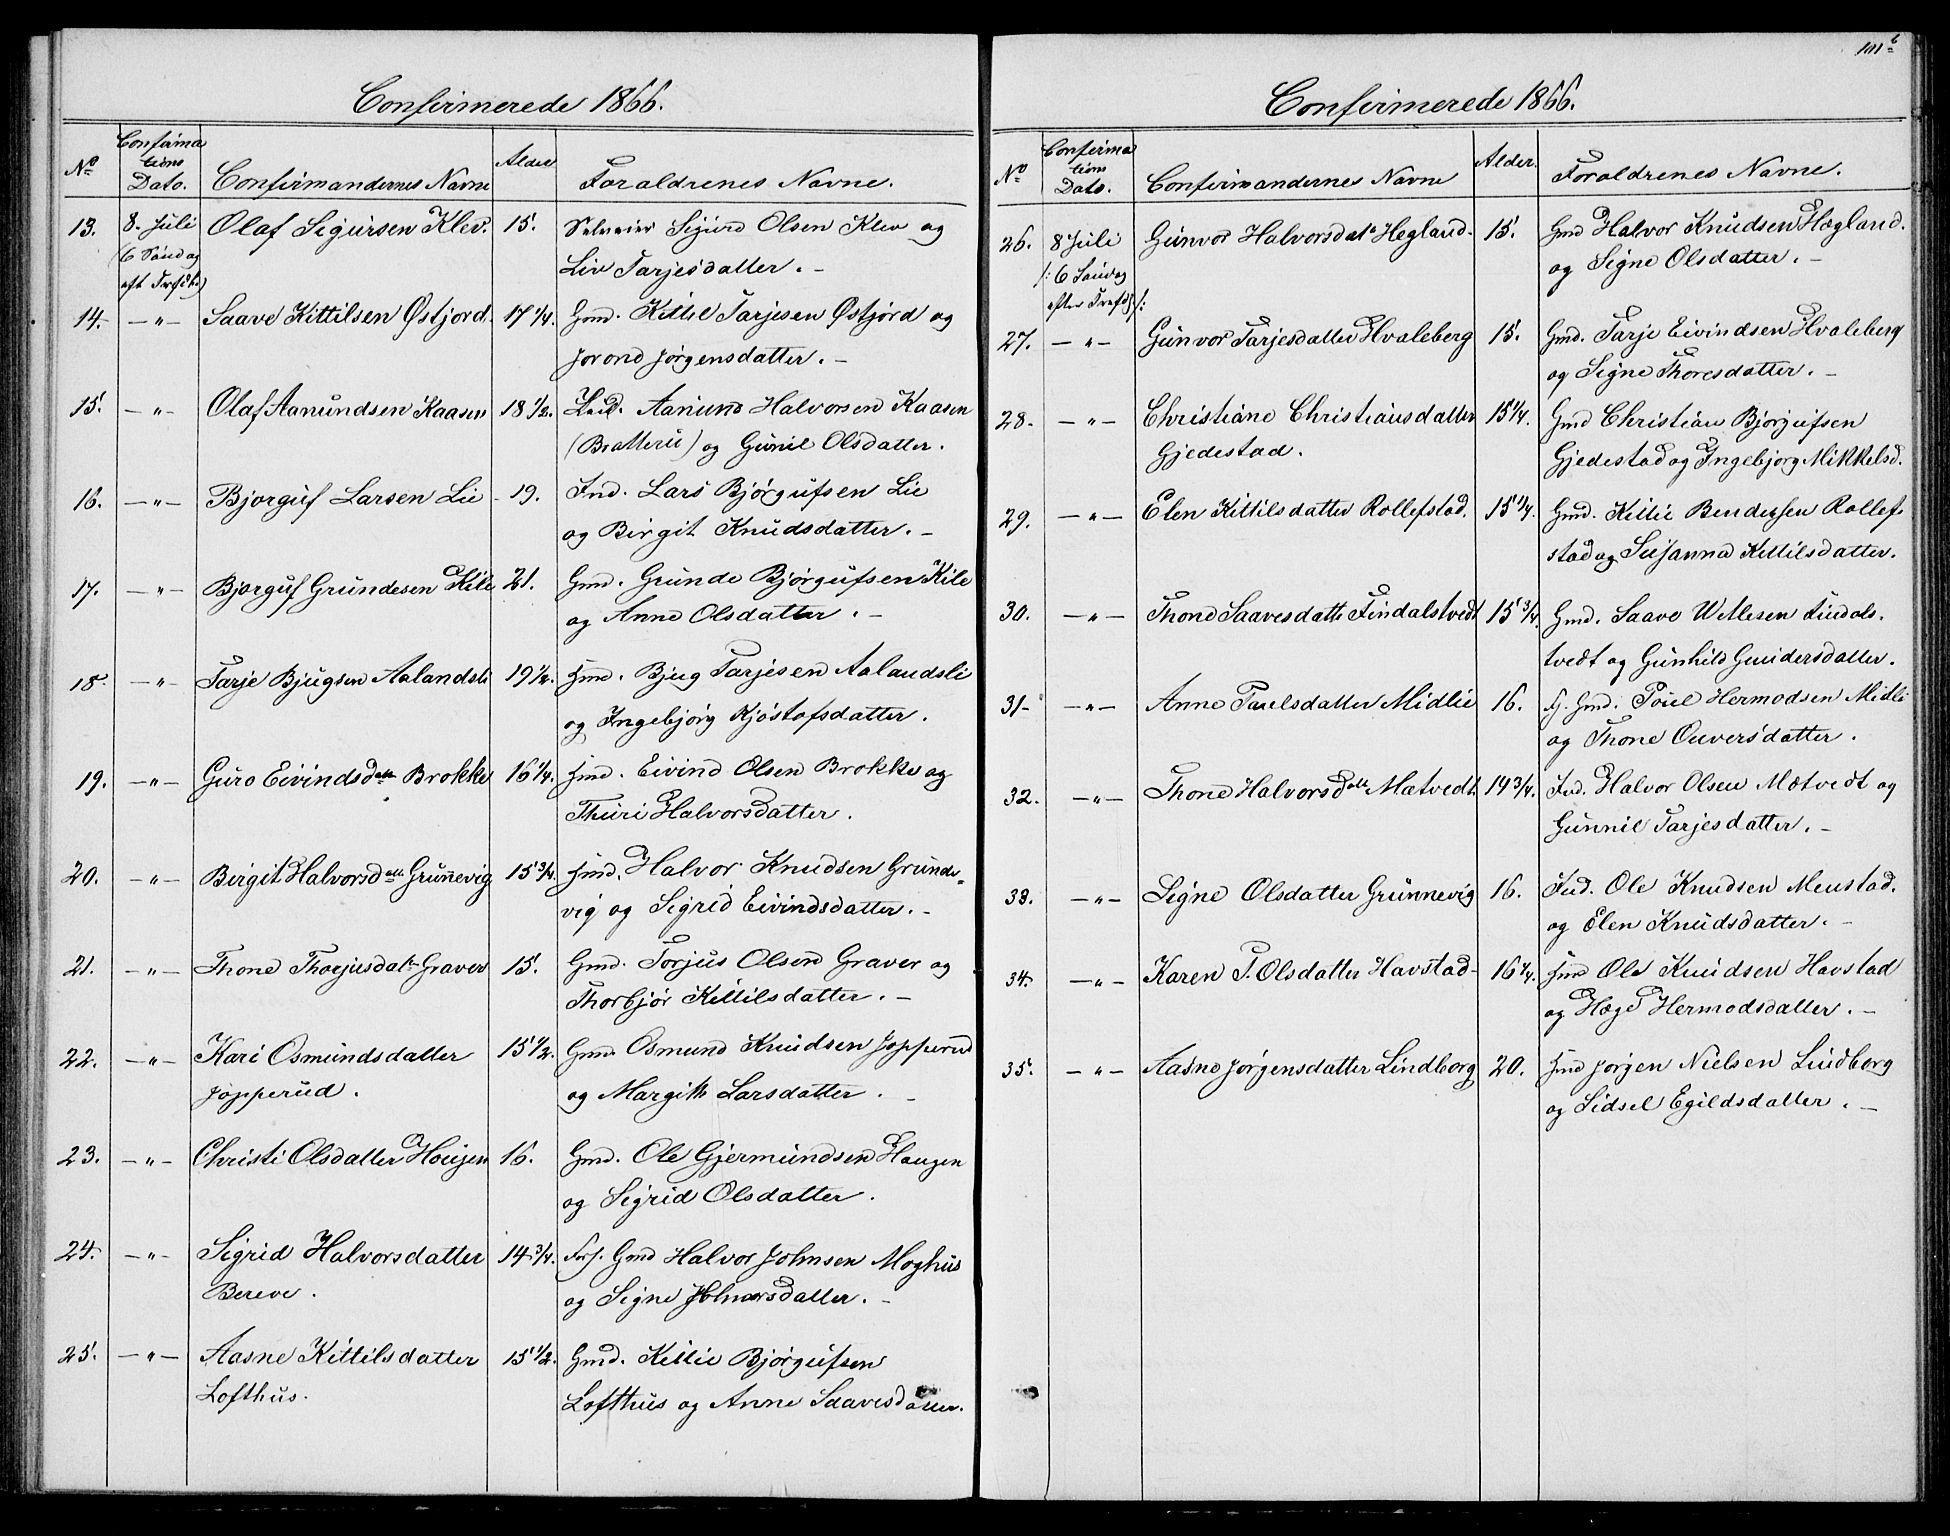 Confirmerede 1866.
No Confirmations Dato. Confirmandernes Navne Alder Foraldrenes Navne.
13. 8. Juli Olaf Sigursen Klev. 15. Selveier Sigurd Olsen Klev og
(6 Søndag Liv Tarjesdatter. -
eft Trefdh.)
14. -"- Saave Kittilsen Østjord. 17 1/4. Gmd. Kittil Tarjesen Østjord og
Jorond Jørgensdatter. -
15. -"- Olaf Aamundsen Kaasen 18 1/2. Aamund Halvorsen Kaasen
(Bratteru) og Gunil Olsdatter.
16. -"- Bjorguf Larsen Lie - 19. Ind. Lars Bjørgufsen Lie
og Birgit Knudsdatter. -
17. -"- Bjorguf Grundesen Kile 21. Gmd. Grunde Bjørgufsen Kile
og Anne Olsdatter. -
18. -"- Tarje Bjugsen Aalandsli 19 1/2. Hmd. Bjug Tarjesen Aalandsli
og Ingebjørg Kjøstofsdatter.
19. -"- Guro Eivindsdatt Brokke 16 1/4. Hmd. Eivind Olsen Brokke og
Thuri Halvorsdatter.
20. -"- Birgit Halvorsdatt Grunnevig 15 3/4. Hmd. Halvor Knudsen Grunde-
vig og Sigrid Eivindsdatter. -
21. -"- Thone Thorjusdatt Graver 15. Gmd. Torjus Olsen Graver og
Thorbjør Kittilsdatter. -
22. -"- Kari Osmundsdatter 15 1/2. Gmd. Osmund Knudsen Jopperud
Jopperud. og Margith Larsdatter. -
23. -"- Christi Olsdatter Hougen 16. Gmd. Ole Gjermundsen Haugen
og Sigrid Olsdatter.
24. -"- Sigrid Halvorsdatter 14 3/4. Forh. Gmd Halvor Johnsen Moghus
Bereve. og Signe
25. -"- Aasne Kittilsdatter 15 1/2. Gmd. Kittil Bjørgufsen
Lofthus. Lofthus og Anne Saavesdatter.
101 b
Confirmerede 1866.
No Confirmations Dato. Confirmandernes Navne Alder. Foraldrenes Navne.
26. 8 Juli Gunvor Halvorsdatt Hegland - 15. Gmd Halvor Knudsen Hægland.
/: 6 Søndag og Signe Olsdatter. -
efter Trefdh :/
27. -"- Gunvor Tarjesdatter Hvaleberg 15. Gmd. Tarje Eivindsen Hvaleberg
og Signe Thoresdatter. -
28. -"- Christiane Christiansdatter 15 1/4. Gmd Christian Bjorgufsen
Gjedestad. Gjedestad og Ingebjorg Mikkelsd.
29. -"- Elen Kittilsdatter Rollefstad. 15 1/4. Gmd. Kittil Bendixsen Rollef-
stad og Susanna Kittilsdatter.
30. -"- Thone Saavesdatt Tindalstvedt 15 3/4. Gmd. Saave Wetlesen Tindals.
tvedt og Gunhild Gundersdatter.
31 - -"- Anne Paulsdatter Midlie 16. Fh. Gmd. Poul Hermodsen Midli
og Thone Ouversdatter.
32. -"- Thone Halvorsdatt Mætvedt. 14 3/4. Ind. Halvor Olsen Mætvedt og
Gunnil Tarjesdatter. -
33. -"- Signe Olsdatter Grunnevig 16. Ind. Ole Knudsen Menstad.
og Elen Knudsdatter. -
34. -"- Karen T. Olsdatter Havstad - 16 1/4. Hmd Ole Knudsen Havstad
og Hæge Hermodsdatter. -
35. -"- Aasne Jørgensdatter Lindborg 20. Hmd Jorgen Nielsen Lindborg
og Sidsel Egildsdatter. -